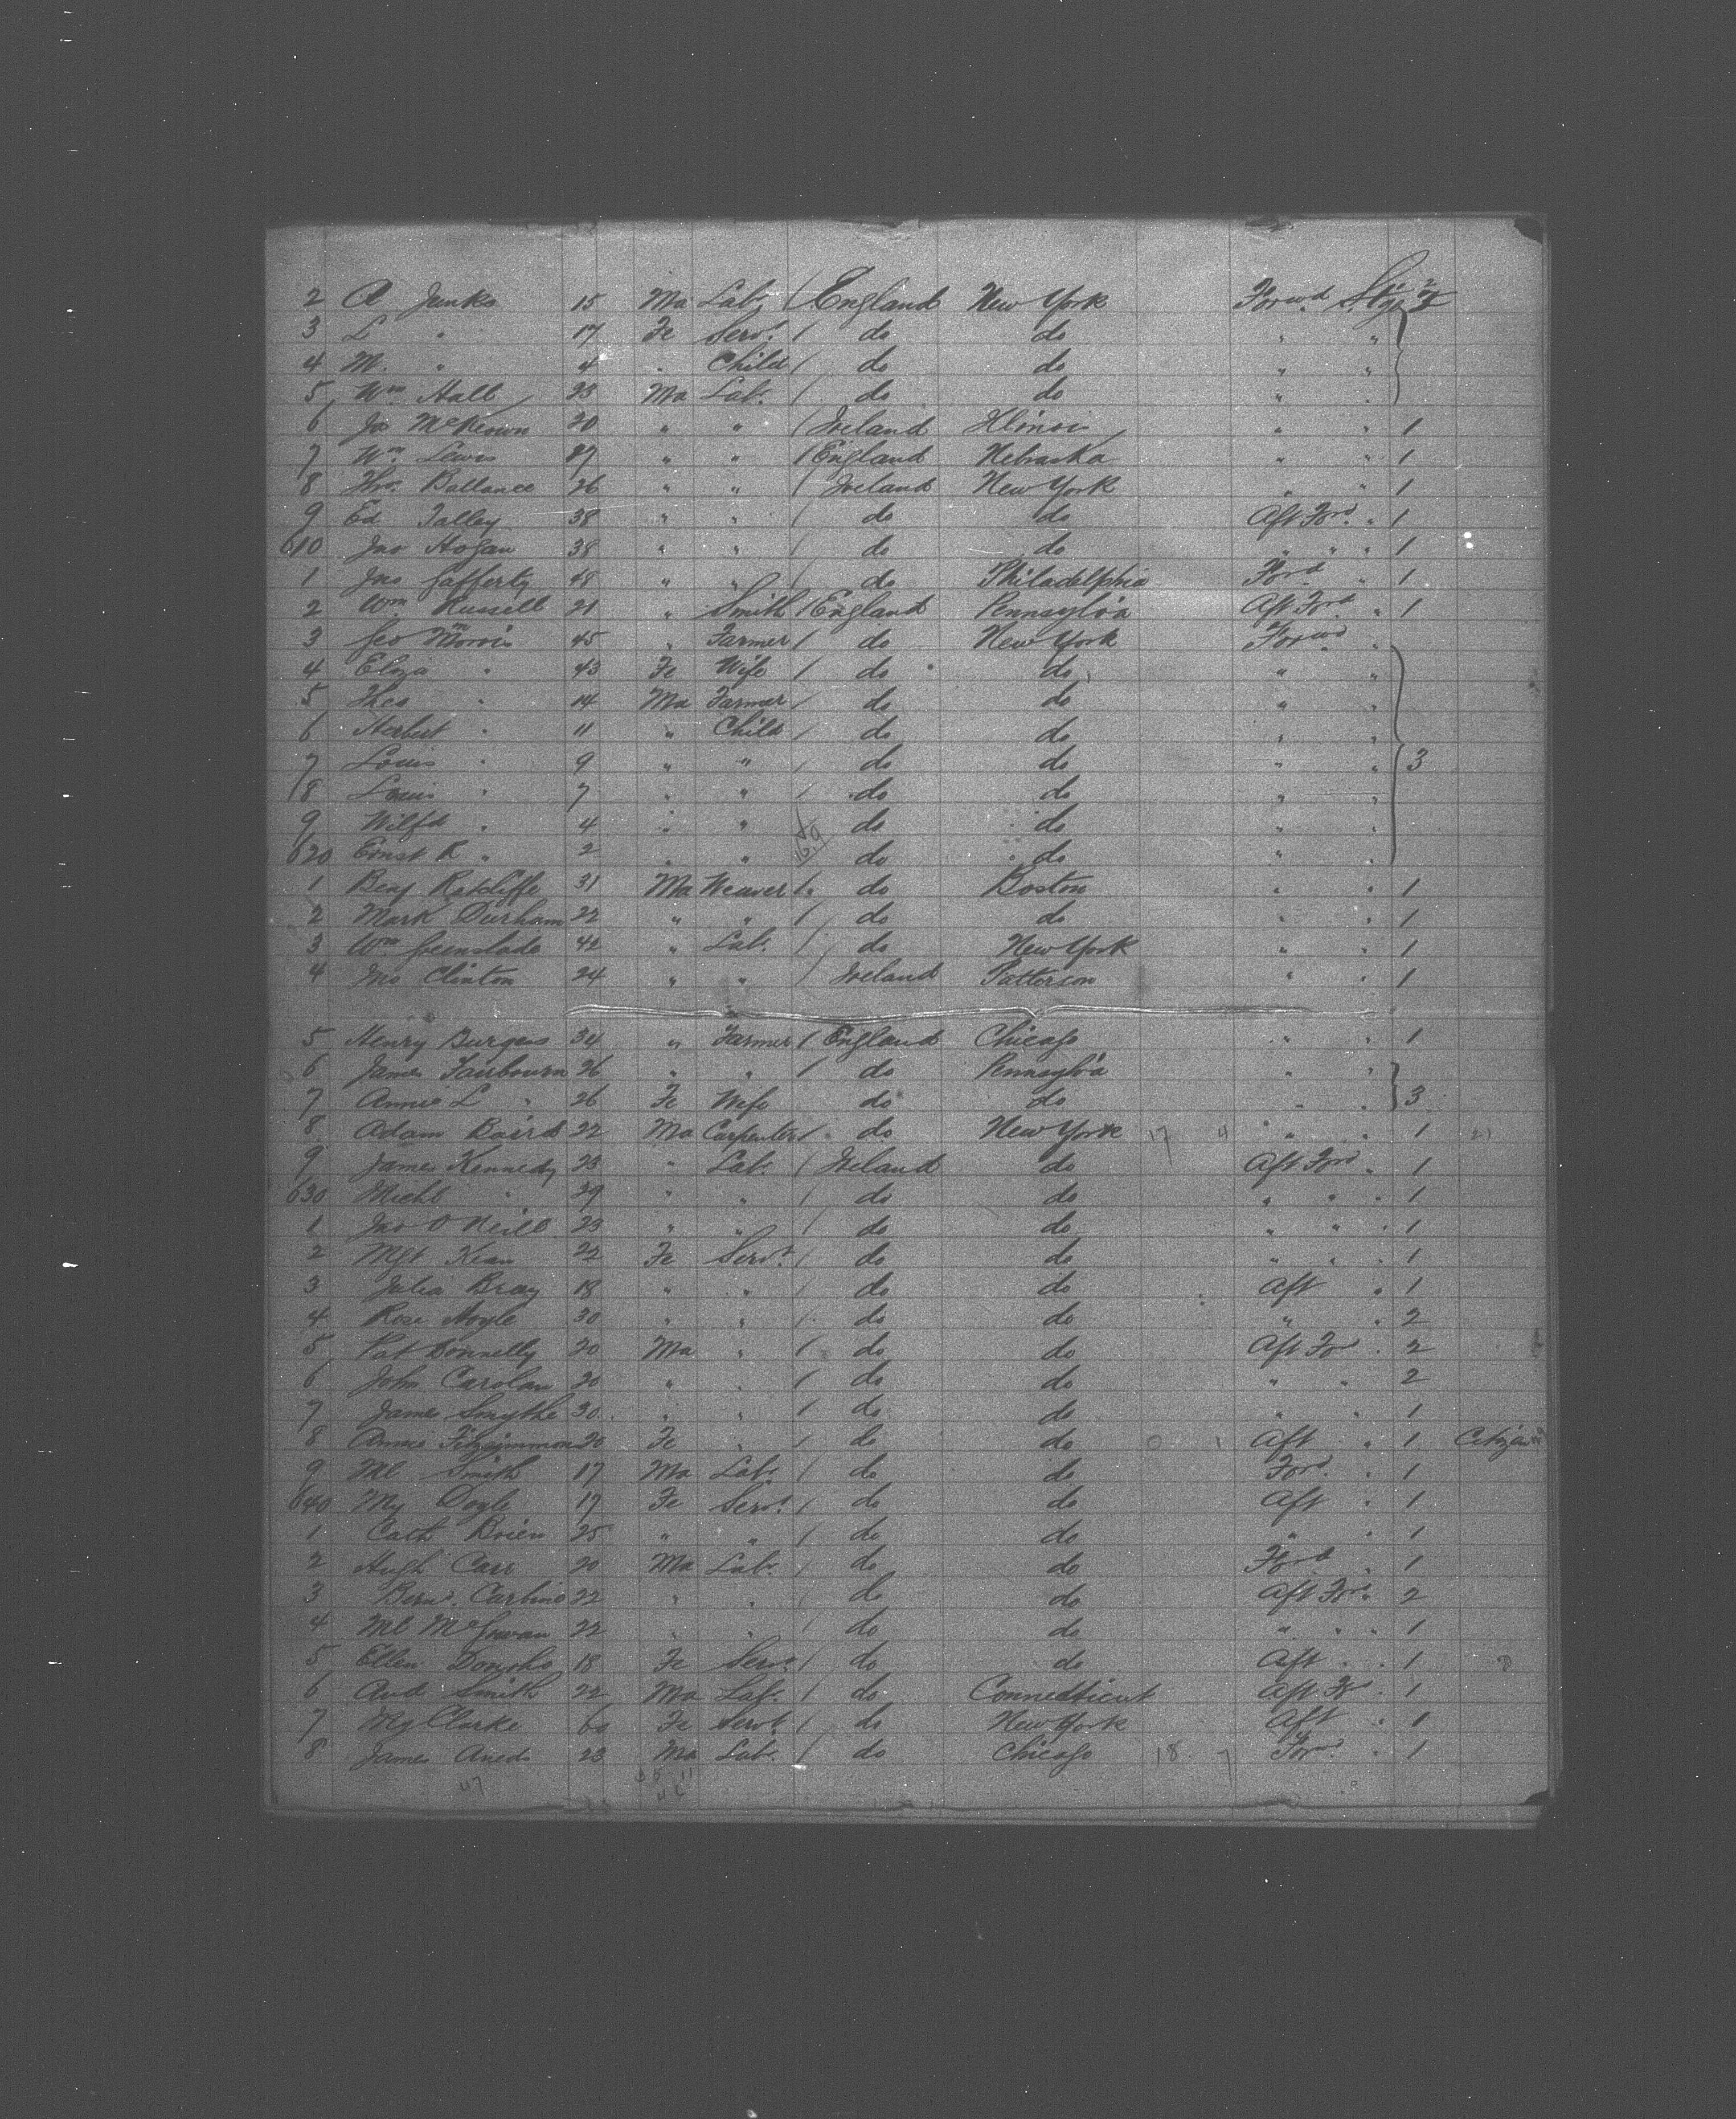 2 A Junks 15 Ma Lab. / England New York Forwd Stge 2
3 L " 17 Fe Servt / do do " "
4 M. " 4 " Child / do do " "
5 Wm Hall 23 Ma Lab. / do do " "
6 Jas McKeown 20 " " / Ireland Illinois " " 1
7 Wm Lewis 27 " " / England Nebraska " " 1
8 Thos. Ballance 26 " " / Ireland New York " " 1
9 Ed Talley 38 " " / do do Aft Ford " 1
610 Jno Hogan 38 " " / do do " " " 1
1 Jno Gafferty 48 " " / do Philadelphia Ford " 1
2 Wm Russell 21 " Smith / England Pennsylva Aft Ford " 1
3 Geo Morris 45 " Farmer / do New York Forwd "
4 Eliza " 43 Fe Wife / do do " "
5 Theo " 14 Ma Farmer / do do " "
6 Herbert " 11 " Child / do do " "
7 Louis " 9 " " / do do " " 3
8 Louis " 7 " " / do do " "
9 Wilfd " 4 " " do do " "
620 Ernst R " 2 " " do do " "
1 Benj Ratcliffe 31 Ma Weaver / do Boston " " 1
2 Mark Durham 22 " " / do do " " 1
3 Wm Greenslade 42 " Lab. / do New York " " 1
4 Jno Clinton 24 " " / Ireland Patterson " " 1
5 Henry Burgess 34 " Farmer / England Chicago " " 1
6 James Fairbourn 26 " " / do Pennsylva " "
7 Annie L " 26 Fe Wife do do " " 3
8 Adam Baird 22 Ma Carpenter / do New York 17 4 " " 1
9 James Kennedy 23 " Lab. / Ireland do Aft Ford " 1
630 Michl " 29 " " / do do " " " 1
1 Jno O'Neill 23 " " / do do " " " 1
2 Mgt Kean 22 Fe Servt / do do " " " 1
3 Julia Bray 18 " " / do do Aft " 1
4 Rose Hoyle 30 " " / do do " " 2
5 Pat Donnelly 20 Ma " / do do Aft Ford " 2
6 John Carolan 20 " " / do do " " 2
7 James Smythe 30 " " / do do " " 1
8 Annie Fitzsimmon 20 Fe " / do do 0 1 Aft " 1 Citizen
9 Ml Smith 17 Ma Lab. / do do Ford. " 1
640 My Doyle 17 Fe Servt / do do Aft " 1
1 Cath Brien 25 " " / do do " " 1
2 Hugh Carr 20 Ma Lab. / do do Ford " 1
3 Bernd. Carbino 22 " " / do do Aft Ford " 2
4 Ml McGowan 22 " " / do do " " " 1
5 Ellen Donoho 18 Fe Servt / do do Aft " 1
6 And Smith 22 Ma Lab. / do Connecticut Aft Fd " 1
7 My Clarke 60 Fe Servt. / do New York Aft " 1
8 James 23 Ma Lab. / do Chicago 18 7 Ford " 1
47